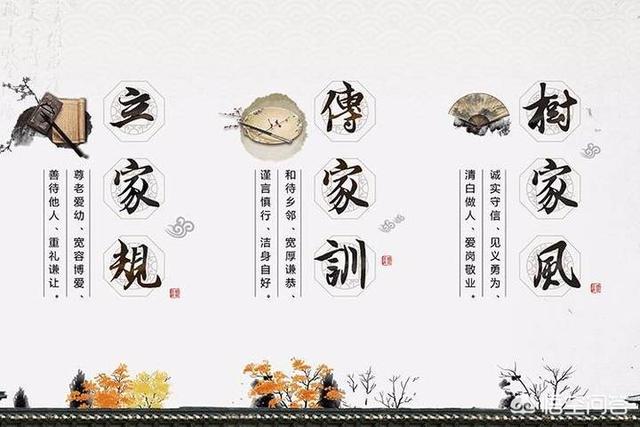 樹家風
诚实守信、见义勇为、
清白做人、爱岗敬业。
傳家訓
和待乡邻、宽厚谦恭、
谨言慎行、洁身自好。
立家規
尊老爱幼、宽容博爱、
善待他人、重礼谦让。
悟空问答